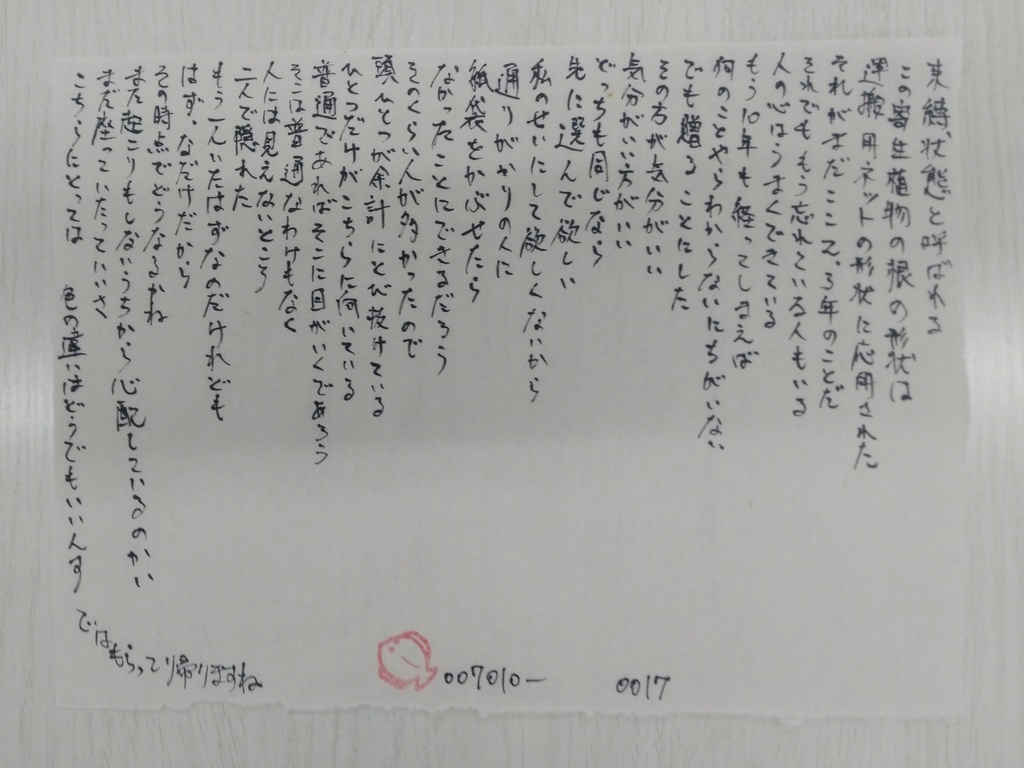 束縛状態と呼ばれる
この寄生植物の根の形状は
運搬用ネットの形状に応用された
それがまだここ2、3年のことだ
それでももう忘れている人もいる
人の心はうまくできている
もう10年も経ってしまえば
何のことやらわからないにちがいない
でも贈ることにした
その方が気分がいい
気分がいい方がいい
どっちも同じなら
先に選んで欲しい
私のせいにして欲しくないから
通りがかりの人に
紙袋をかぶせたら
なかったことにできるだろう
そのくらい人が多かったので
頭ひとつが余計にとび抜けている
ひとつだけがこちらに向いている
普通であればそこに目がいくであろう
そこは普通なわけもなく
人には見えないところ
二人で隠れた
もう一人いたはずなのだけれども
はず、なだけだから
その時点でどうなるかね
まだ起こりもしないうちから心配しているのかい
まだ座っていたっていいさ
こちらにとっては 色の違いはどうでもいいんす
ではもらって帰りますね
007010-
0017